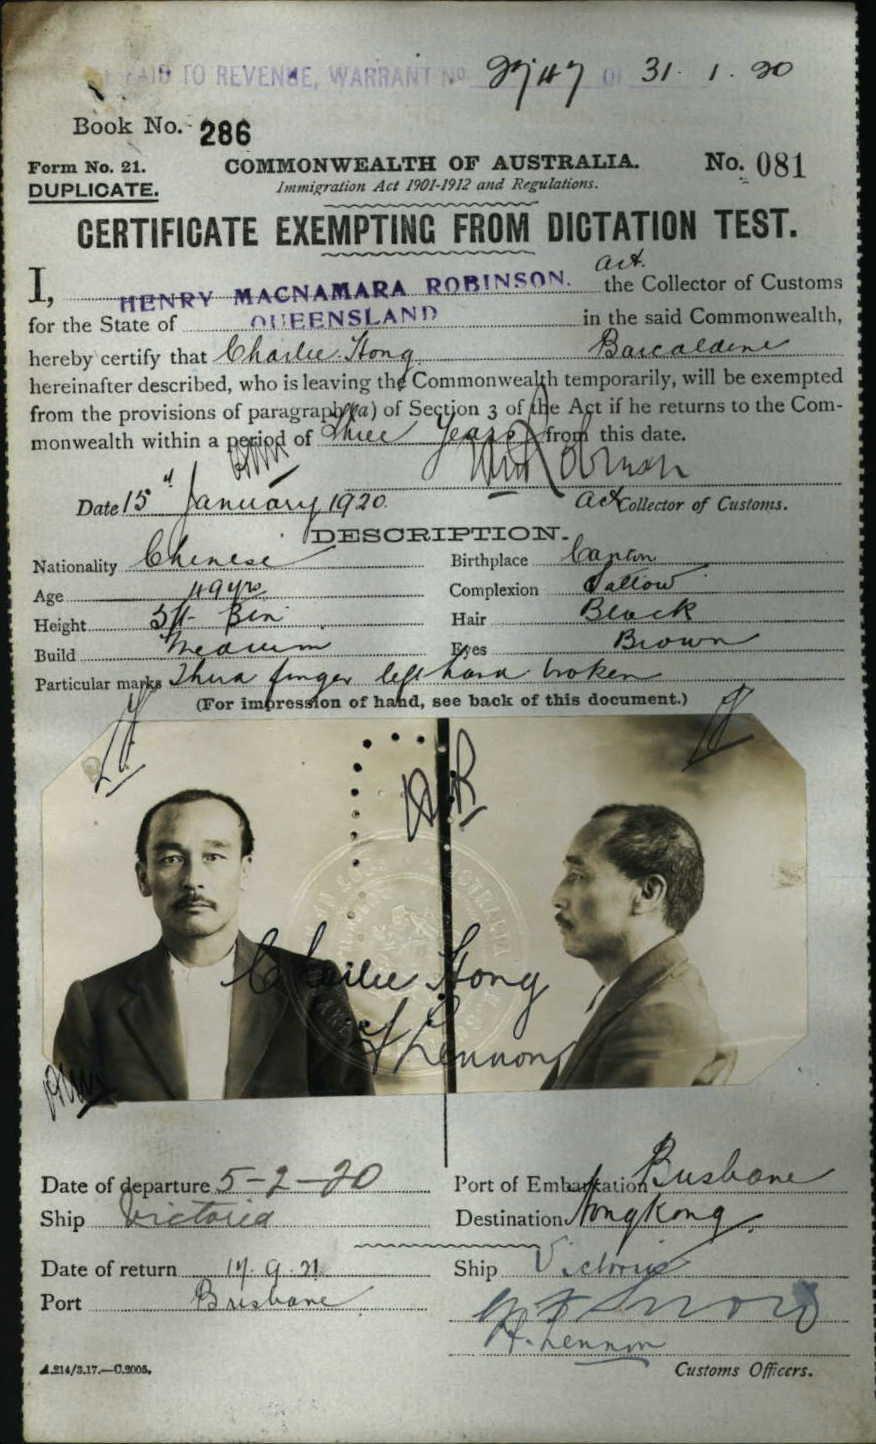 PAID TO REVENUE, WARRANT No 2747 OF 31. 1. 20
Book No. 286
Form No. 21. COMMONWEALTH OF AUSTRALIA. No. 081
DUPLICATE. Immigration Act 1901-1912 and Regulations.
CERTIFICATE EXEMPTING FROM DICTATION TEST.
act.
I, HENRY MACNAMARA ROBINSON. the Collector of Customs
for the State of QUEENSLAND in the said Commonwealth,
hereby certify that Charlie Hong Barcaldine
hereinafter described, who is leaving the Commonwealth temporarily, will be exempted
from the provisions of paragraph (a) of Section 3 of the Act if he returns to the Com-
monwealth within a period of Three Years from this date.
Robinson
Date 15th January 1920. Act Collector of Customs.
DESCRIPTION.
Nationality Chinese Birthplace Canton
Age 49 yrs Complexion Sallow
Height 5ft 8in Hair Black
Build Medium Eyes Brown
Particular marks Third finger left hand broken
(For impression of hand, see back of this document.)
Charlie Hong
Lennon
Date of departure 5-2-20 Port of Embarkation Brisbane
Ship Victoria Destination Hongkong
Date of return 17.9.21 Ship Victoria
Port Brisbane
H. Lennon
A.214/3.17.—C.2005. Customs Officers.